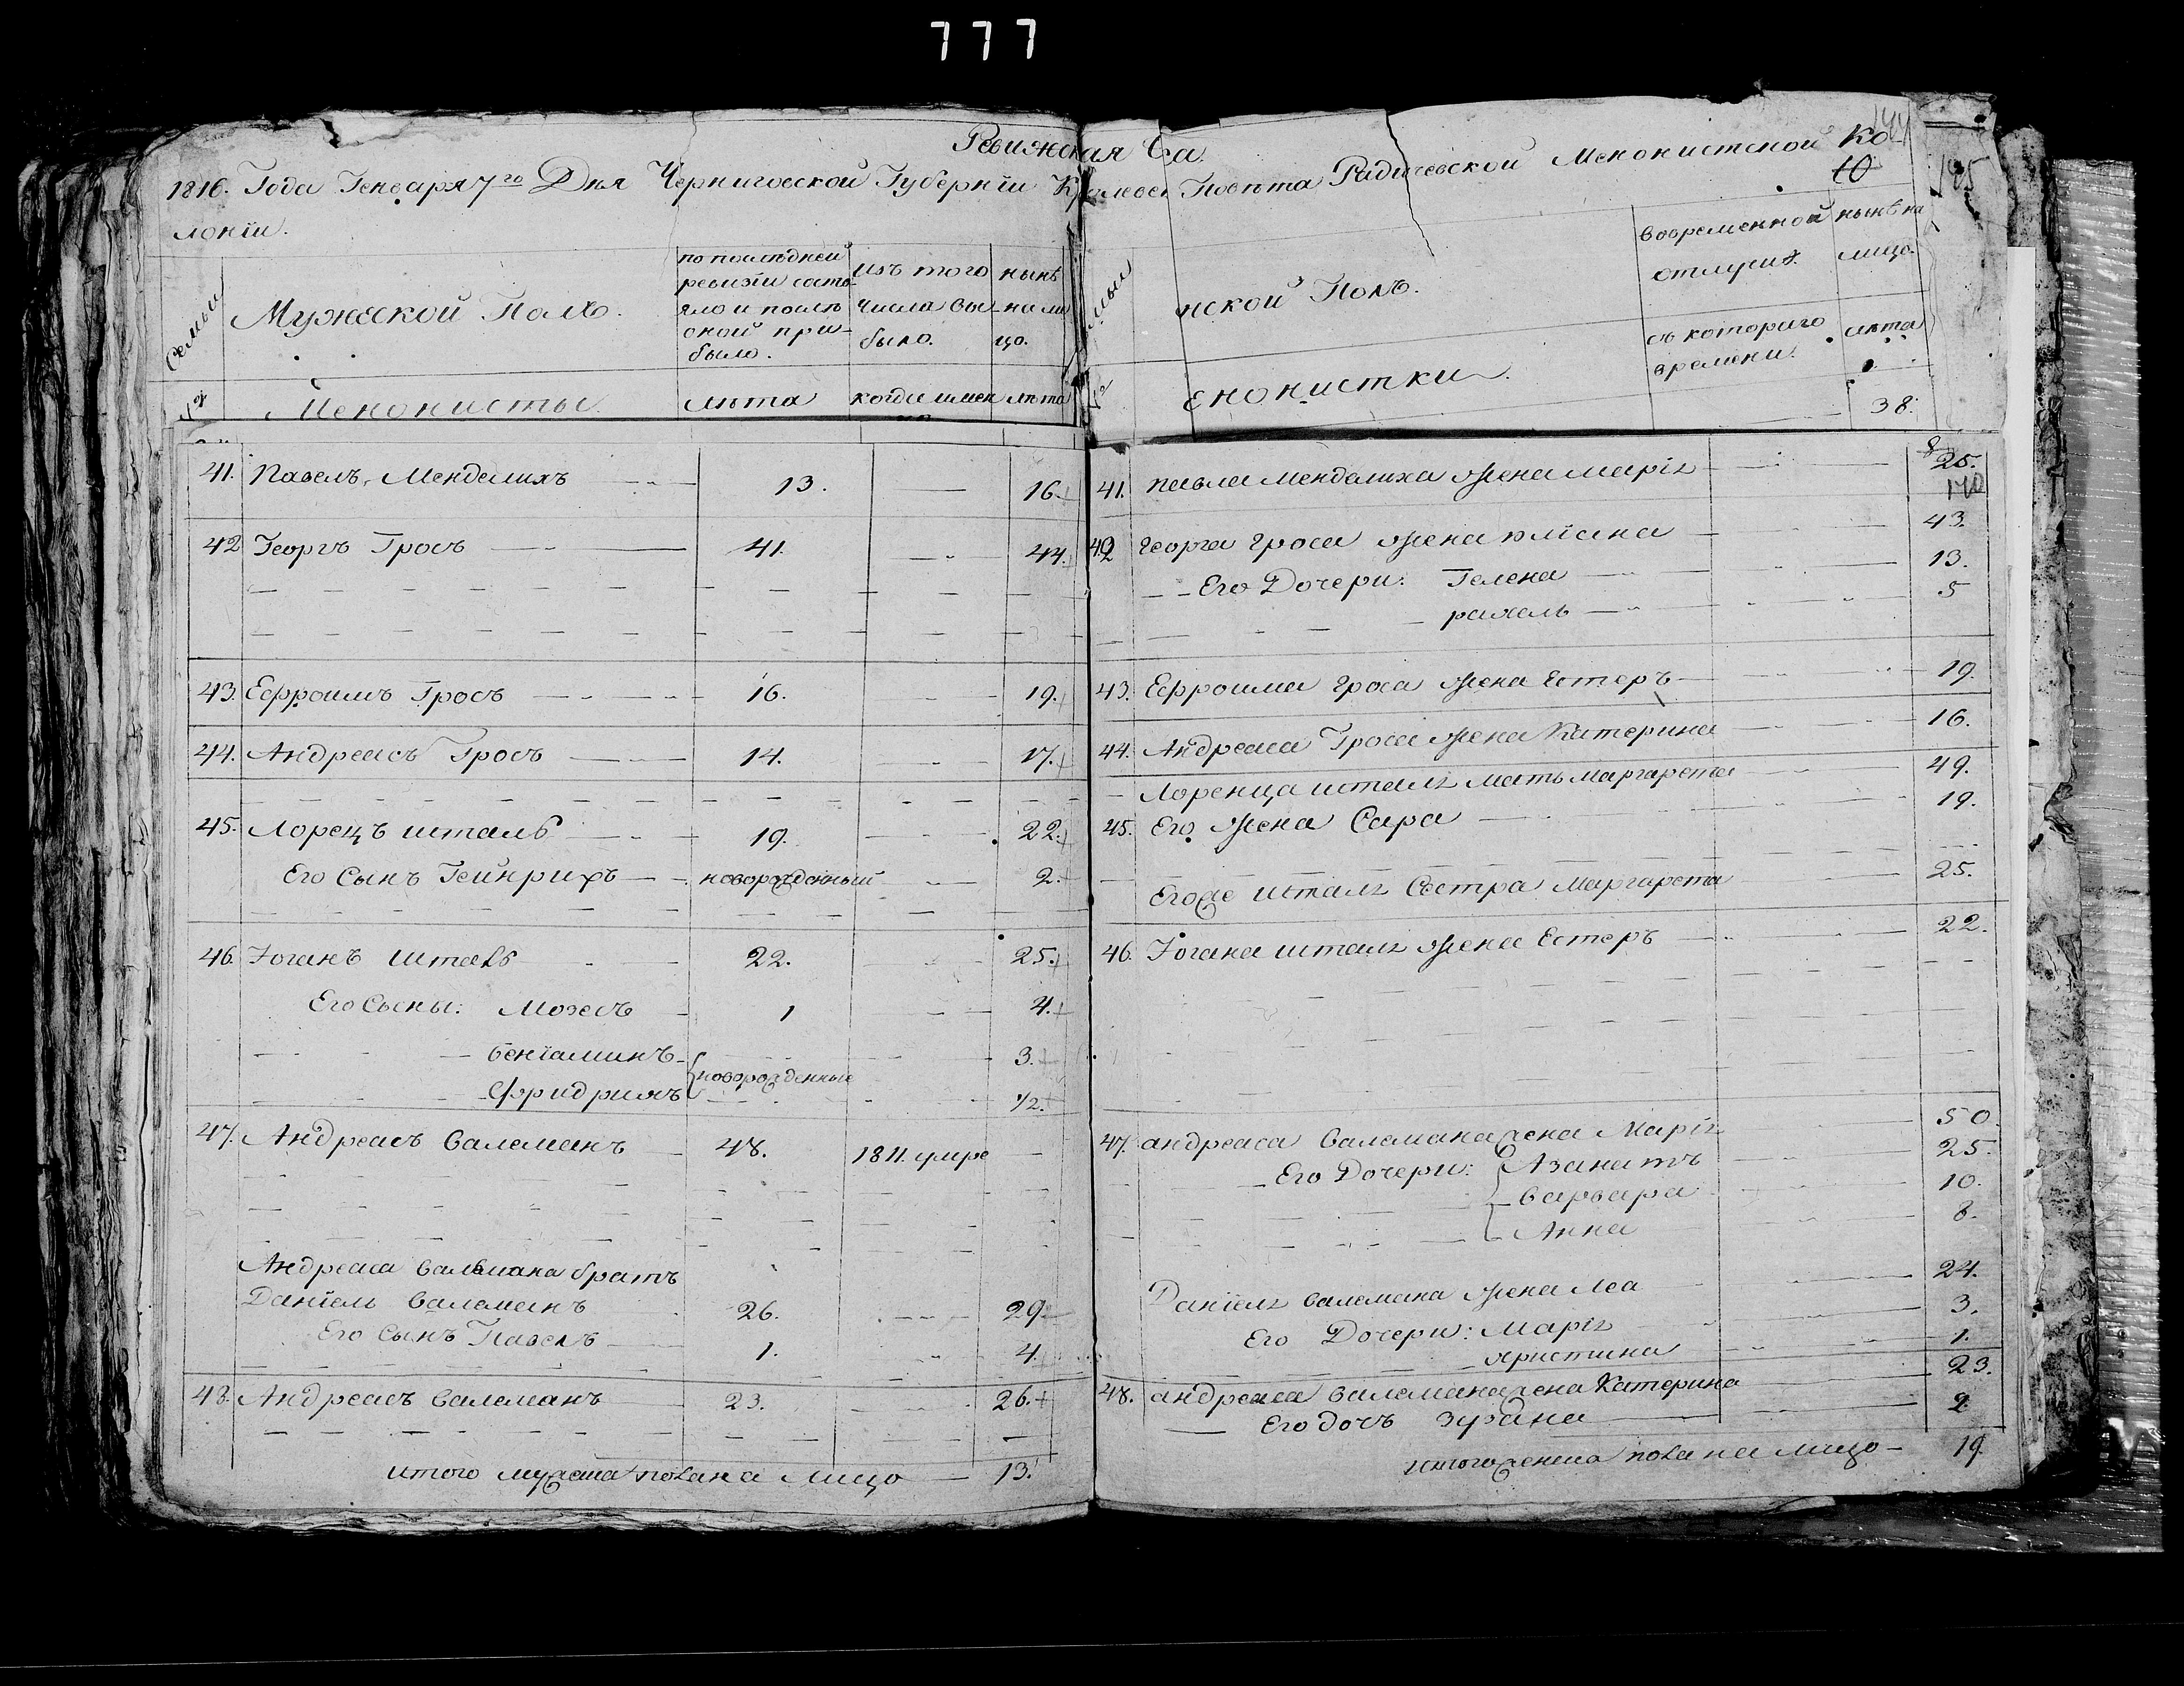 777
Ревижская Ска
1816. Года Генваря 7го Дня Черниговской Губернїи Повѣта Радичевской Менонистской Ко
лонїи.
144
10
185
Семьи
Мужеской Полъ.
по послѣдней
ревизїи состо
яло и послѣ
оной при-
было.
изъ того
числа вы
было.
нынѣ
на ли
цо.
№
Менонисты.
лѣта
когда имен
лѣта
нской Полъ.
вовременной
отлучкѣ.
нынѣ на
лицо.
съ котораго
времени.
лѣта
№
енонистки.
38.
41. Павелъ Менделихъ 13. 16.
42 Георгъ Гросъ 41. 44.
43. Ефроимъ Гросъ 16. 19.
44. Андреасъ Гросъ 14. 17.
45. Лорецъ шталь 19. 22.
Его Сынъ Гейнрихъ новорожденный 2.
46. Іоганъ Шталь 22. 25.
Его Сыны: Мозесъ 1 4.
Бенїаминъ 3.
новорожденные
Фридрихъ 1/2.
47. Андреасъ Валеманъ 48. 1811. умре
Андреаса Валемана братъ
Данїель Валеманъ 26. 29
Его Сынъ Павелъ 1. 4.
48. Андреасъ Валеманъ 23. 26.
итого мужеска пола на лицо 13.
41. павла Менделиха жена марїя 25.
42 георга гроса жена юлїана 43.
Его Дочери: Гелена 13.
рахель 5
43. Ефроима гроса жена Естеръ 19.
44. Андреаса Гроса жена Катерина 16.
Лоренца шталя мать маргарета 49.
45. Его жена Сара 19.
Егоже шталя Сестра Маргарета 25.
46. Іогана шталя жена Естеръ 22.
47. андреаса Валемана жена Марїя 50.
Его Дочери: Азанатъ 25.
Варвара 10.
Анна 8.
Данїеля валемана жена Леа 24.
Его Дочери: Марїя 3.
Христина 1.
48. андреаса валемана жена Катерина 23.
Его дочъ Зузана 2.
итого женска пола на лицо 19